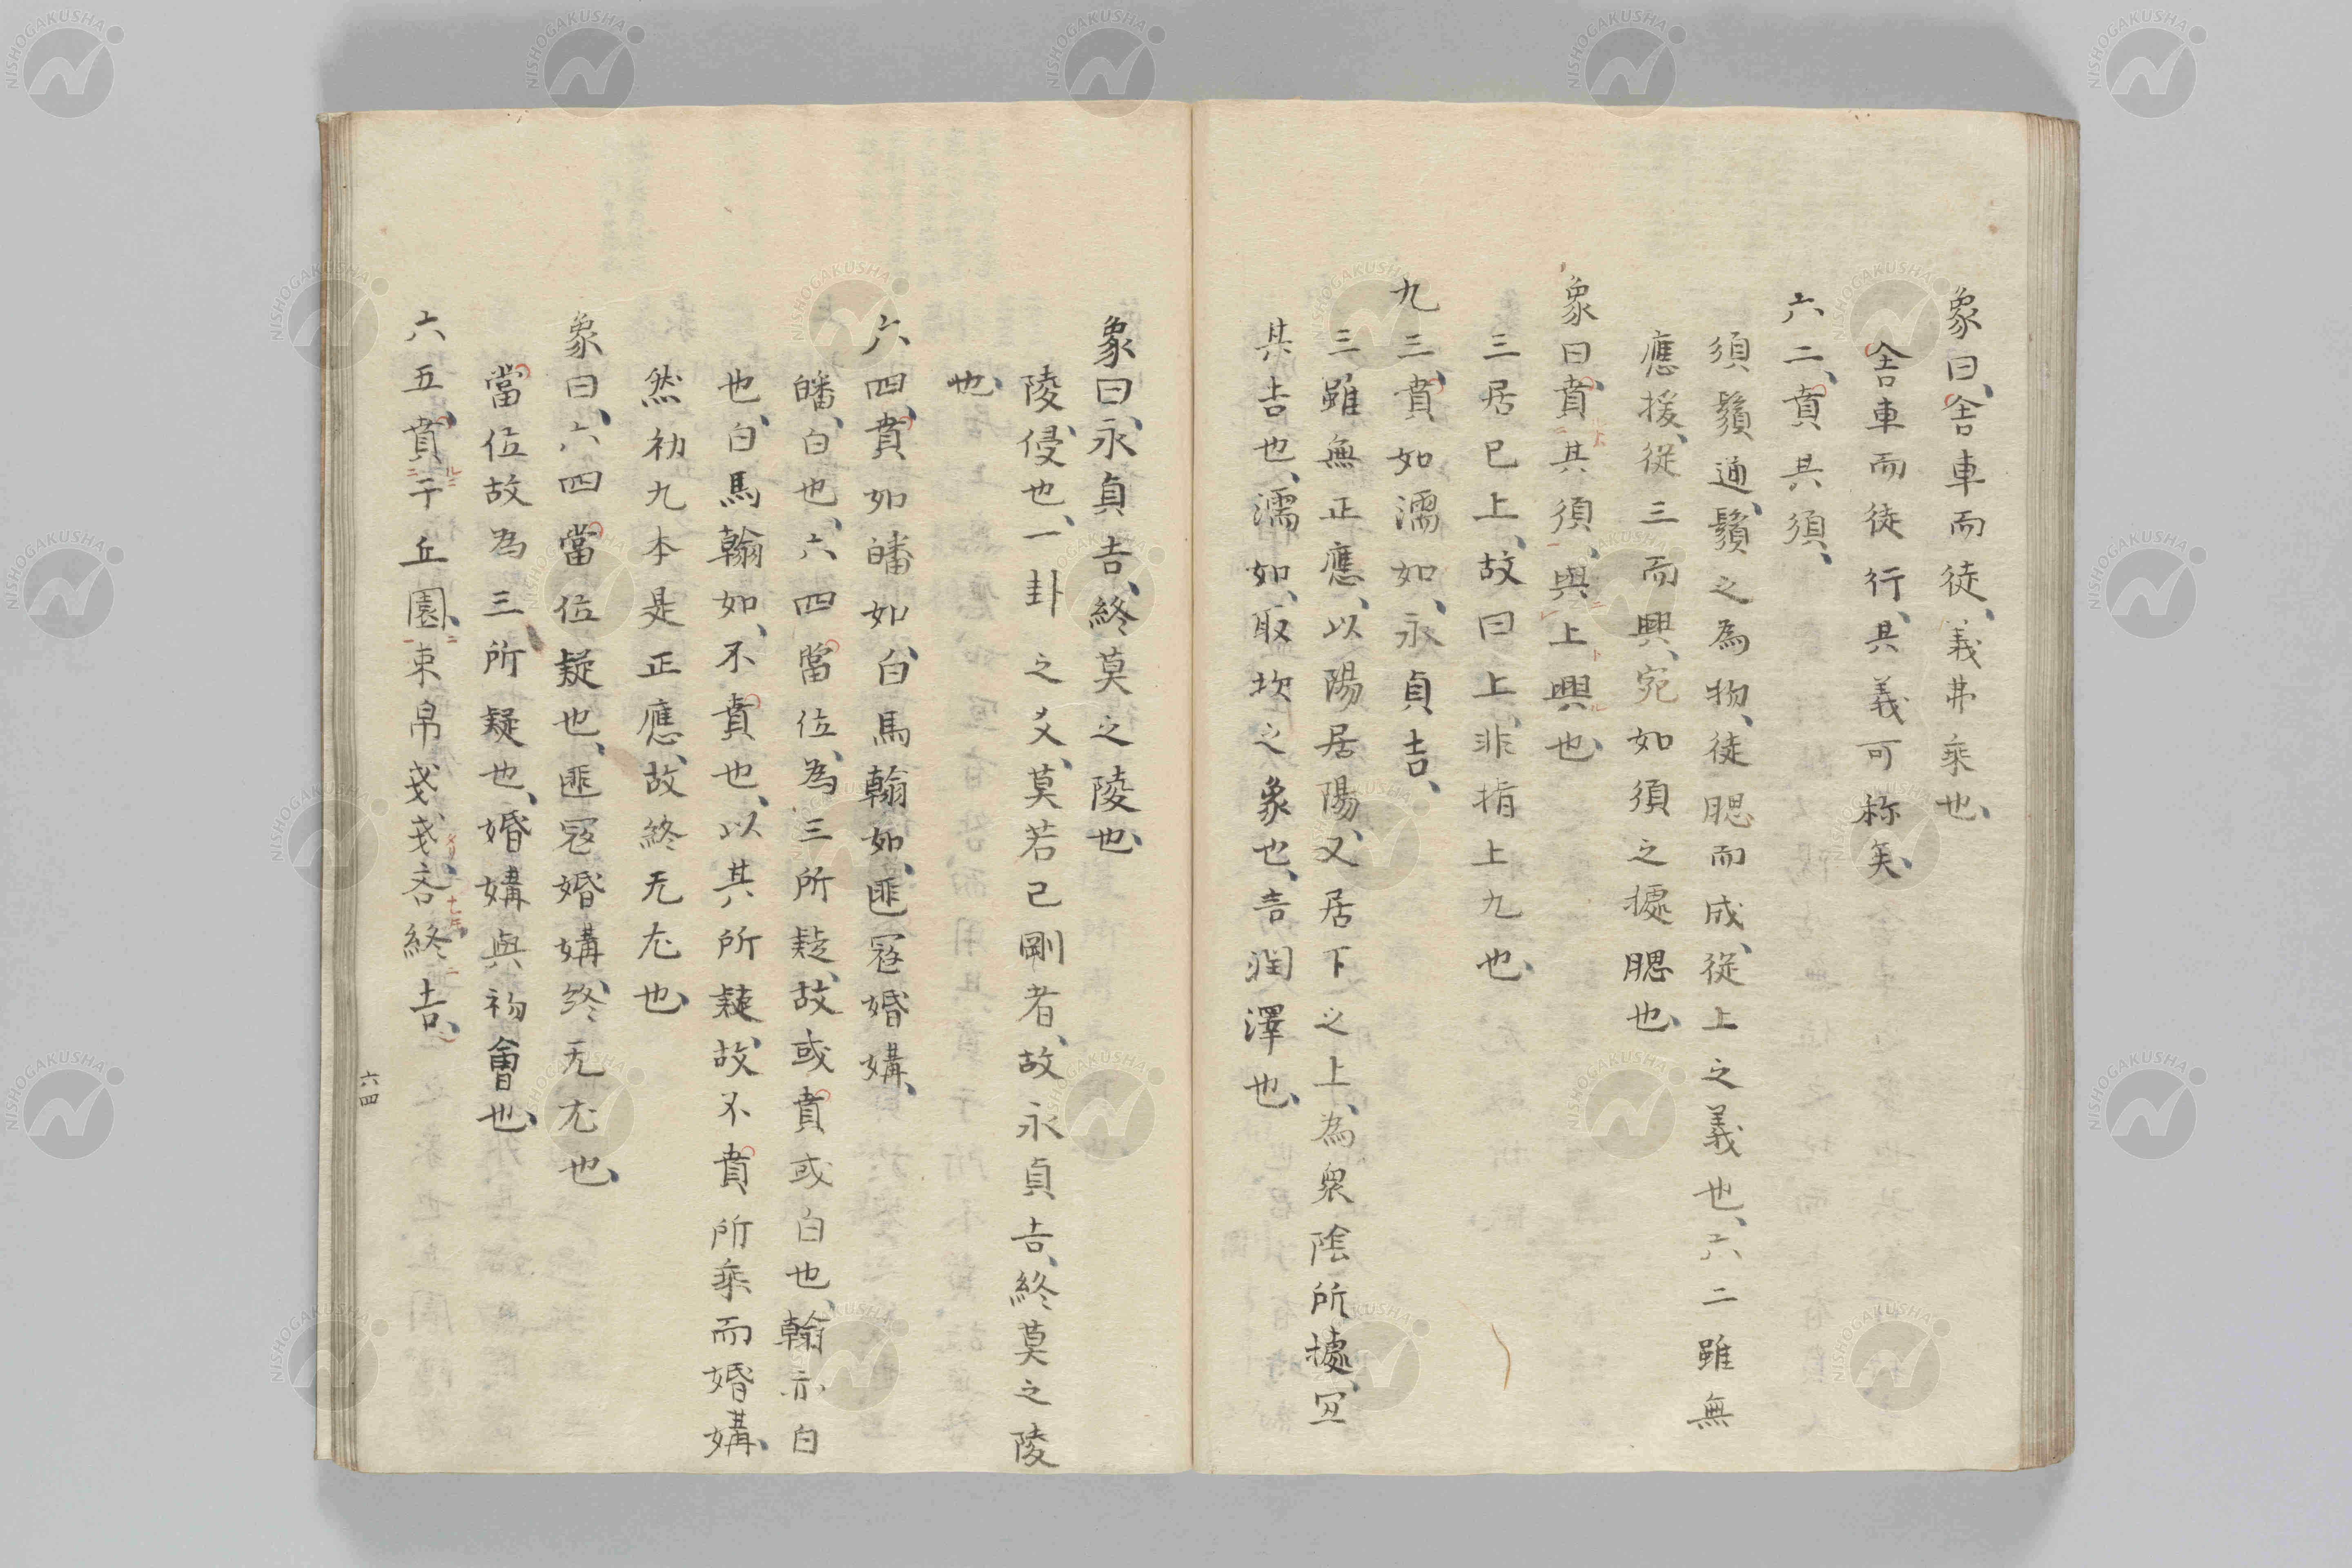 象曰、舍車而徒、義弗乘也、
舍車而徒行、其義可称矣、
六二、賁其須、
須鬚通、鬚之為物、徒腮而成、從上之義也、六二雖無
應援、從三而興、宛如須之據腮也、
象曰、賁其須、與上興也、
三居巳上、故曰上、非指上九也、
九三、賁如濡如、永貞吉、
三雖無正應、以陽居陽、又居下之上、為衆陰所據、宜
其吉也、濡如、取坎之象也、言潤澤也、
象曰、永貞吉、終莫之陵也、
陵、侵也、一卦之爻、莫若己剛者、故永貞吉、終莫之陵
也、
六四、賁如皤如、白馬翰如、匪寇婚媾、
皤、白也、六四當位、為三所疑、故或賁或白也、翰亦白
也、白馬翰如、不賁也、以其所疑、故不賁所乘而婚媾、
然初九本是正應、故終无尤也、
象曰、六四當位疑也、匪寇婚媾、終无尤也、
當位故為三所疑也、婚媾與初會也、
六五、賁于丘園、束帛戔戔、吝終吉、
六四
NISHOGAKUSHA